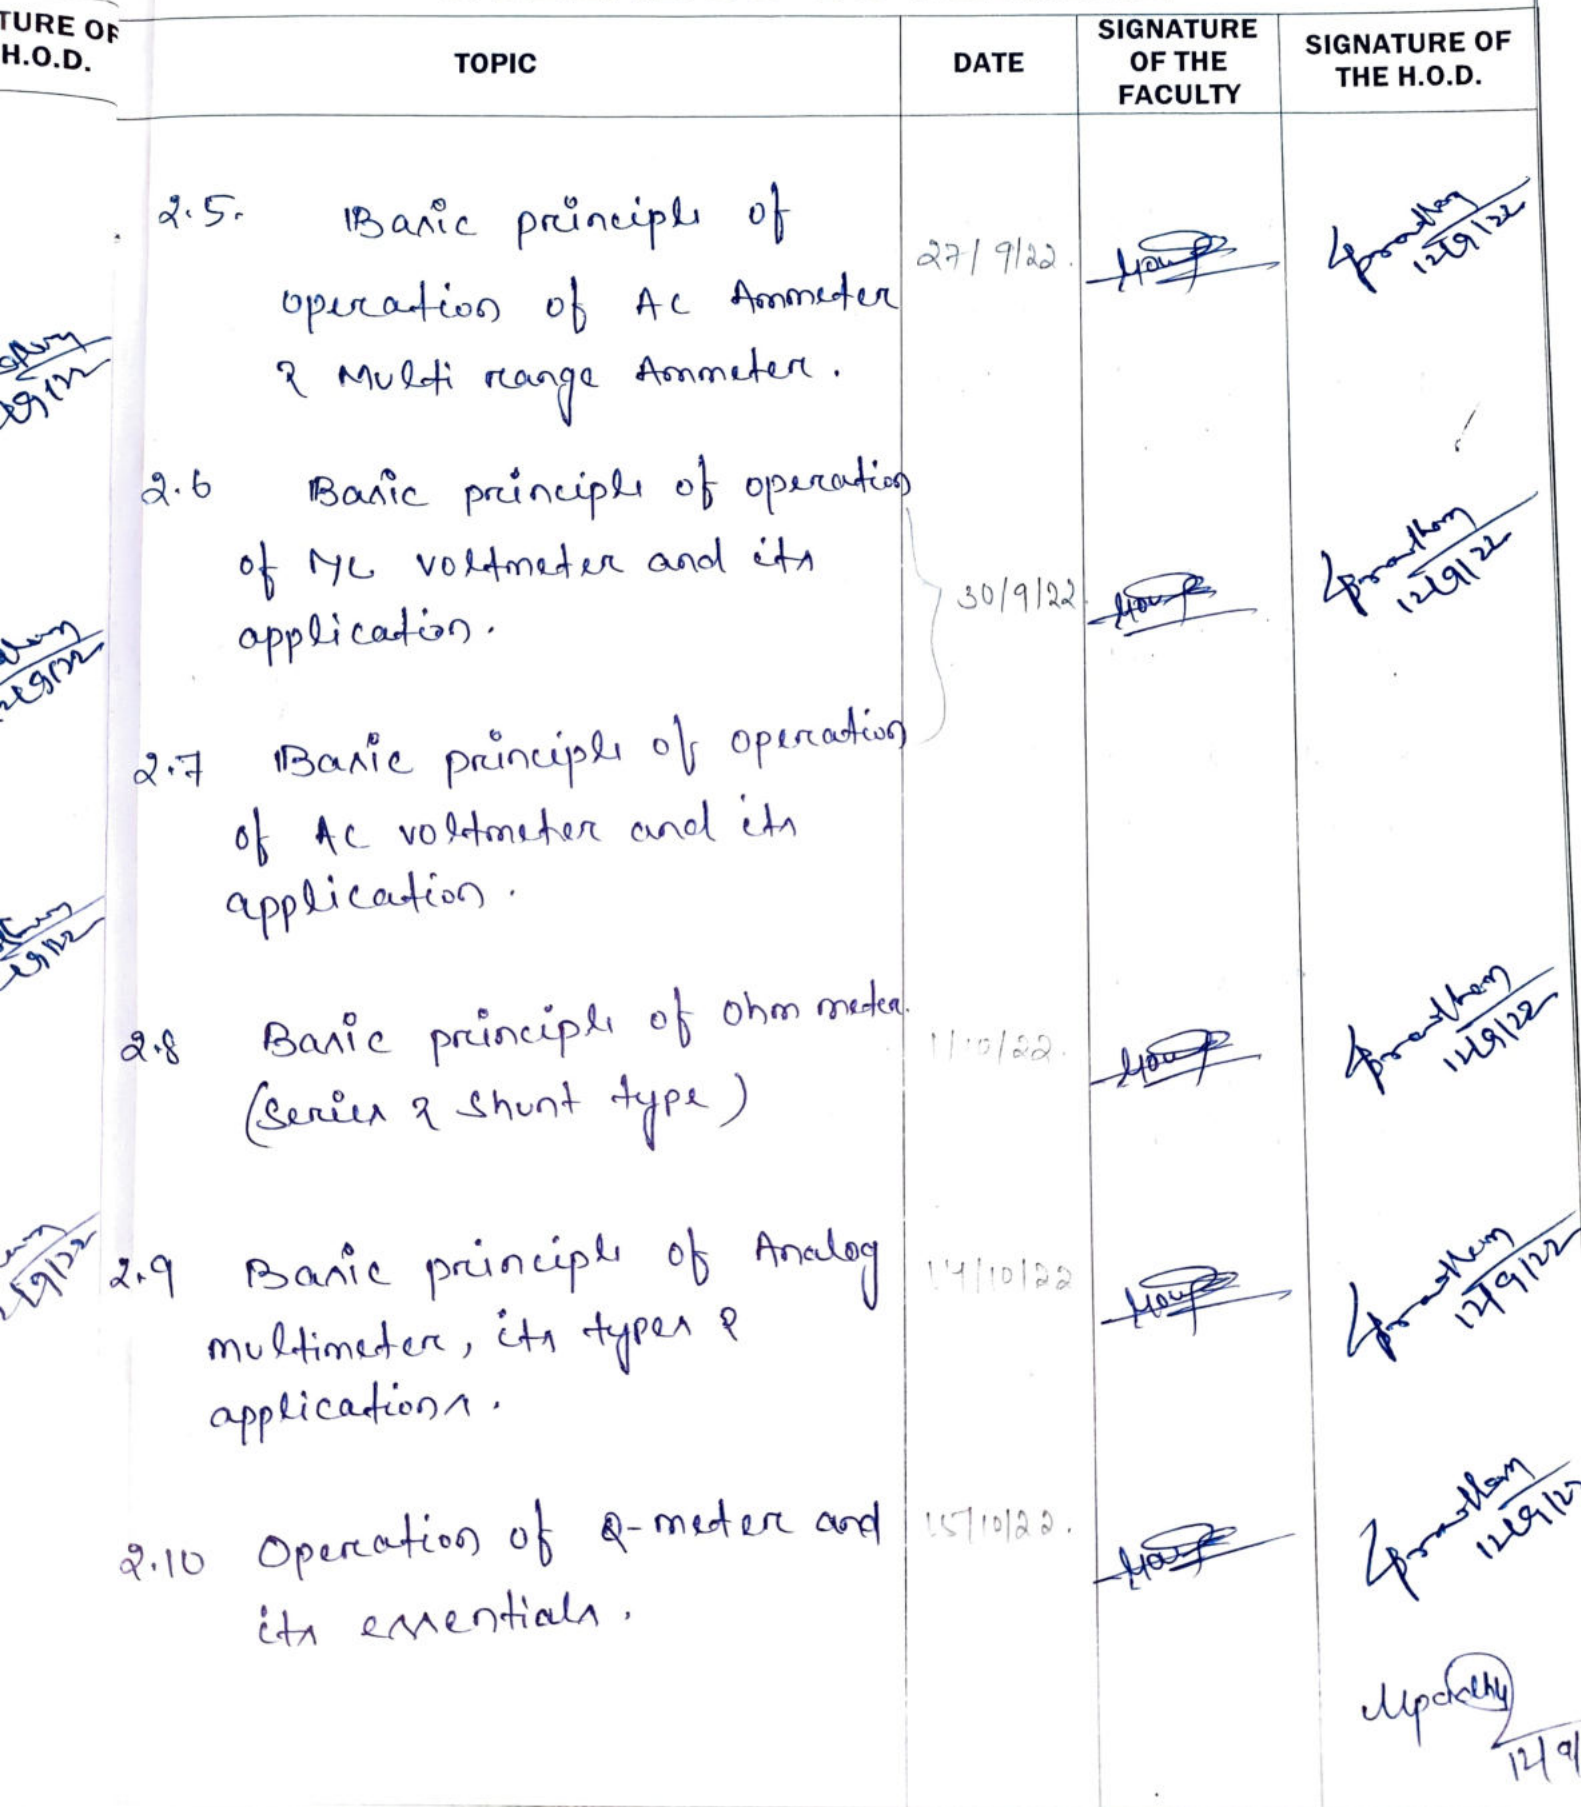 TURE OF
H.O.D.
TOPIC
DATE
SIGNATURE
OF THE
FACULTY
SIGNATURE OF
THE H.O.D.
2.5. Basic principle of
operation of AC Ammeter
& Multi range Ammeter.
27/9/22.
12/9/22
2.6 Basic principle of operation
of voltmeter and its
application.
30/9/22
12/9/22
2.7 Basic principle of operation
of AC voltmeter and its
application.
2.8 Basic principle of Ohm meter.
(Series & Shunt type)
1/10/22.
12/9/22
2.9 Basic principle of Analog
multimeter, its types &
applications.
14/10/22
12/9/22
2.10 Operation of Q-meter and
its essentials.
15/10/22.
12/9/22
12/9/